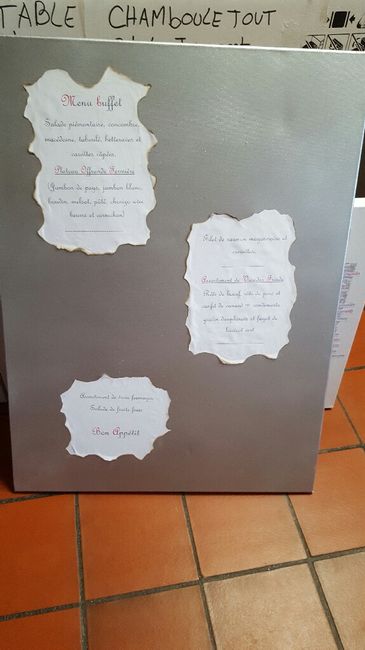 TABLE CHAMBOULETOUT
Menu buffet
Salade piémontaise, concombre,
macédoine, taboulé, betteraves et
carottes râpées.
Plateau Offrande Fermière
(Jambon de pays, jambon blanc,
boudin, melsat, pâté, chorizo avec
beurre et cornichon)
Filet de saumon mayonnaise et
Assortiment de Viandes Froide
Rôti de boeuf, rôti de porc et
confit de canard + condiments
gratin dauphinois et fagot de
haricot vert
Assortiment de trois fromages
Salade de fruits frais
Bon Appétit